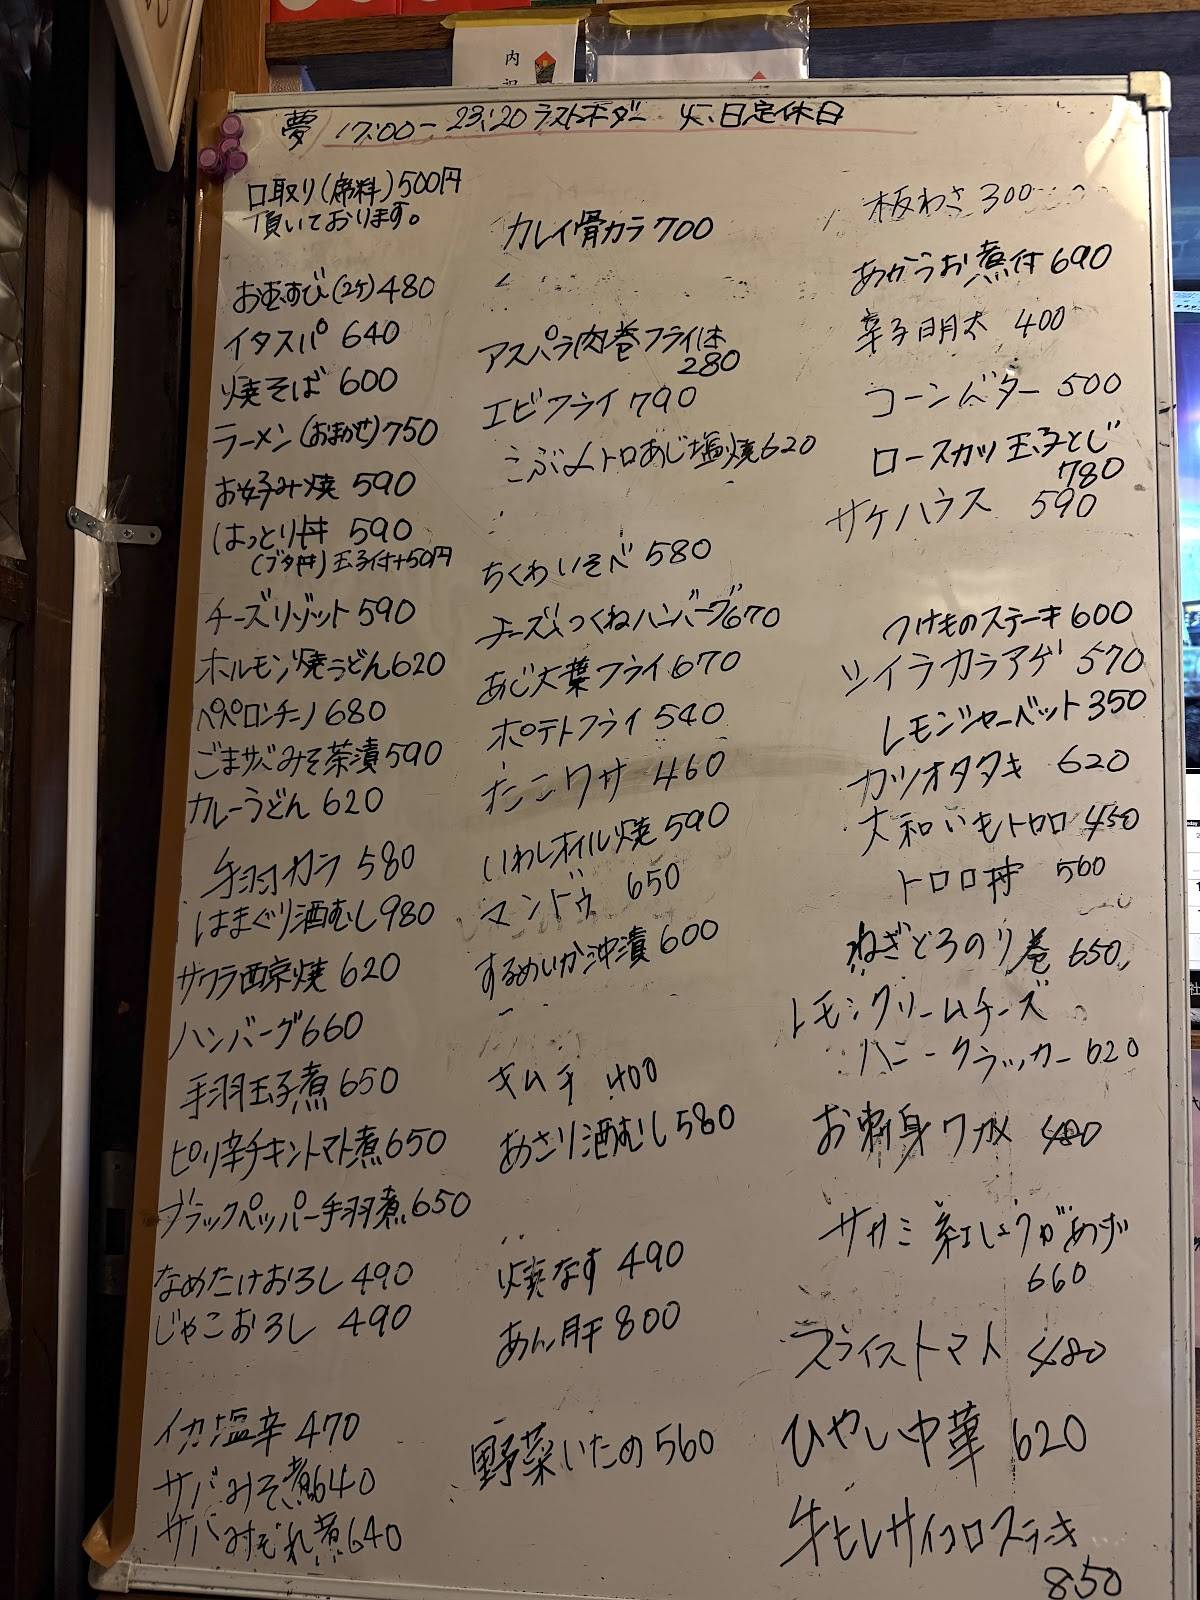 夢 17:00-23:20 ラストオーダー 火曜日定休日
口取り(席料)500円
頂いております。
おむすび(2ケ)480
イタスパ 640
焼そば 600
ラーメン(おまかせ)750
お好み焼 590
はっとり丼 590
(ブタ丼)玉子付+50円
チーズリゾット 590
ホルモン焼うどん620
ペペロンチーノ680
ごまサバみそ茶漬590
カレーうどん 620
手羽カラ 580
はまぐり酒むし980
サワラ西京焼 620
ハンバーグ660
手羽玉子煮 650
ピリ辛チキントマト煮650
ブラックペッパー手羽煮650
なめたけおろし 490
じゃこおろし 490
イカ塩辛 470
サバみそ煮640
サバみぞれ煮640
カレイ骨カラ 700
アスパラ肉巻フライ1本
280
エビフライ 790
こぶ〆トロあじ塩焼620
ちくわいそべ 580
チーズつくねハンバーグ670
あじ大葉フライ670
ポテトフライ 540
たこワサ 460
いわしオイル焼 590
マンドゥ 650
するめいか沖漬 600
キムチ 400
あさり酒むし580
焼なす 490
あん肝 800
野菜いため 560
板わさ 300
あかうお煮付 690
辛子明太 400
コーンバター 500
ロースカツ玉子とじ
780
サケハラス 590
つけものステーキ 600
ツブカラアゲ 570
レモンシャーベット 350
カツオタタキ 620
大和いもトロロ 450
トロロ丼 500
ねぎとろのり巻 650
レモンクリームチーズ
ハニークラッカー 620
お刺身ワカメ 480
ササミ紅しょうがあげ
660
スライストマト 480
ひやし中華 620
牛ヒレサイコロステーキ
850